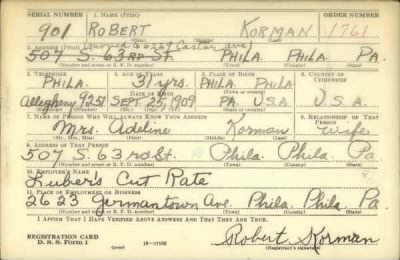 SERIAL NUMBER 1. NAME (Print) ORDER NUMBER
901 ROBERT KORMAN 1761
2. ADDRESS (Print) (moved to 6269 Castor ave)
507 S. 63RD ST. PHILA. PHILA. PA.
(Number and street or R. F. D. number) (Town) (County) (State)
3. TELEPHONE 4. AGE IN YEARS 5. PLACE OF BIRTH 6. COUNTRY OF CITIZENSHIP
PHILA. 31 yrs. PHILA PHILA
DATE OF BIRTH
Allegheny 9251 SEPT. 25, 1909 PA. U.S.A. U.S.A.
7. NAME OF PERSON WHO WILL ALWAYS KNOW YOUR ADDRESS 8. RELATIONSHIP OF THAT PERSON
Mrs. Adeline Korman Wife
(Mr., Mrs., Miss) (First) (Middle) (Last)
9. ADDRESS OF THAT PERSON
507 S. 63rd St. Phila. Phila. Pa
(Number and street or R. F. D. number) (Town) (County) (State)
10. EMPLOYER'S NAME
Luber's Cut Rate
11. PLACE OF EMPLOYMENT OR BUSINESS
2623 Germantown Ave. Phila. Phila. Pa.
(Number and street or R. F. D. number) (Town) (County) (State)
I AFFIRM THAT I HAVE VERIFIED ABOVE ANSWERS AND THAT THEY ARE TRUE.
REGISTRATION CARD
D. S. S. Form 1 (over) 16-17105
Robert Korman
(Registrant's signature)